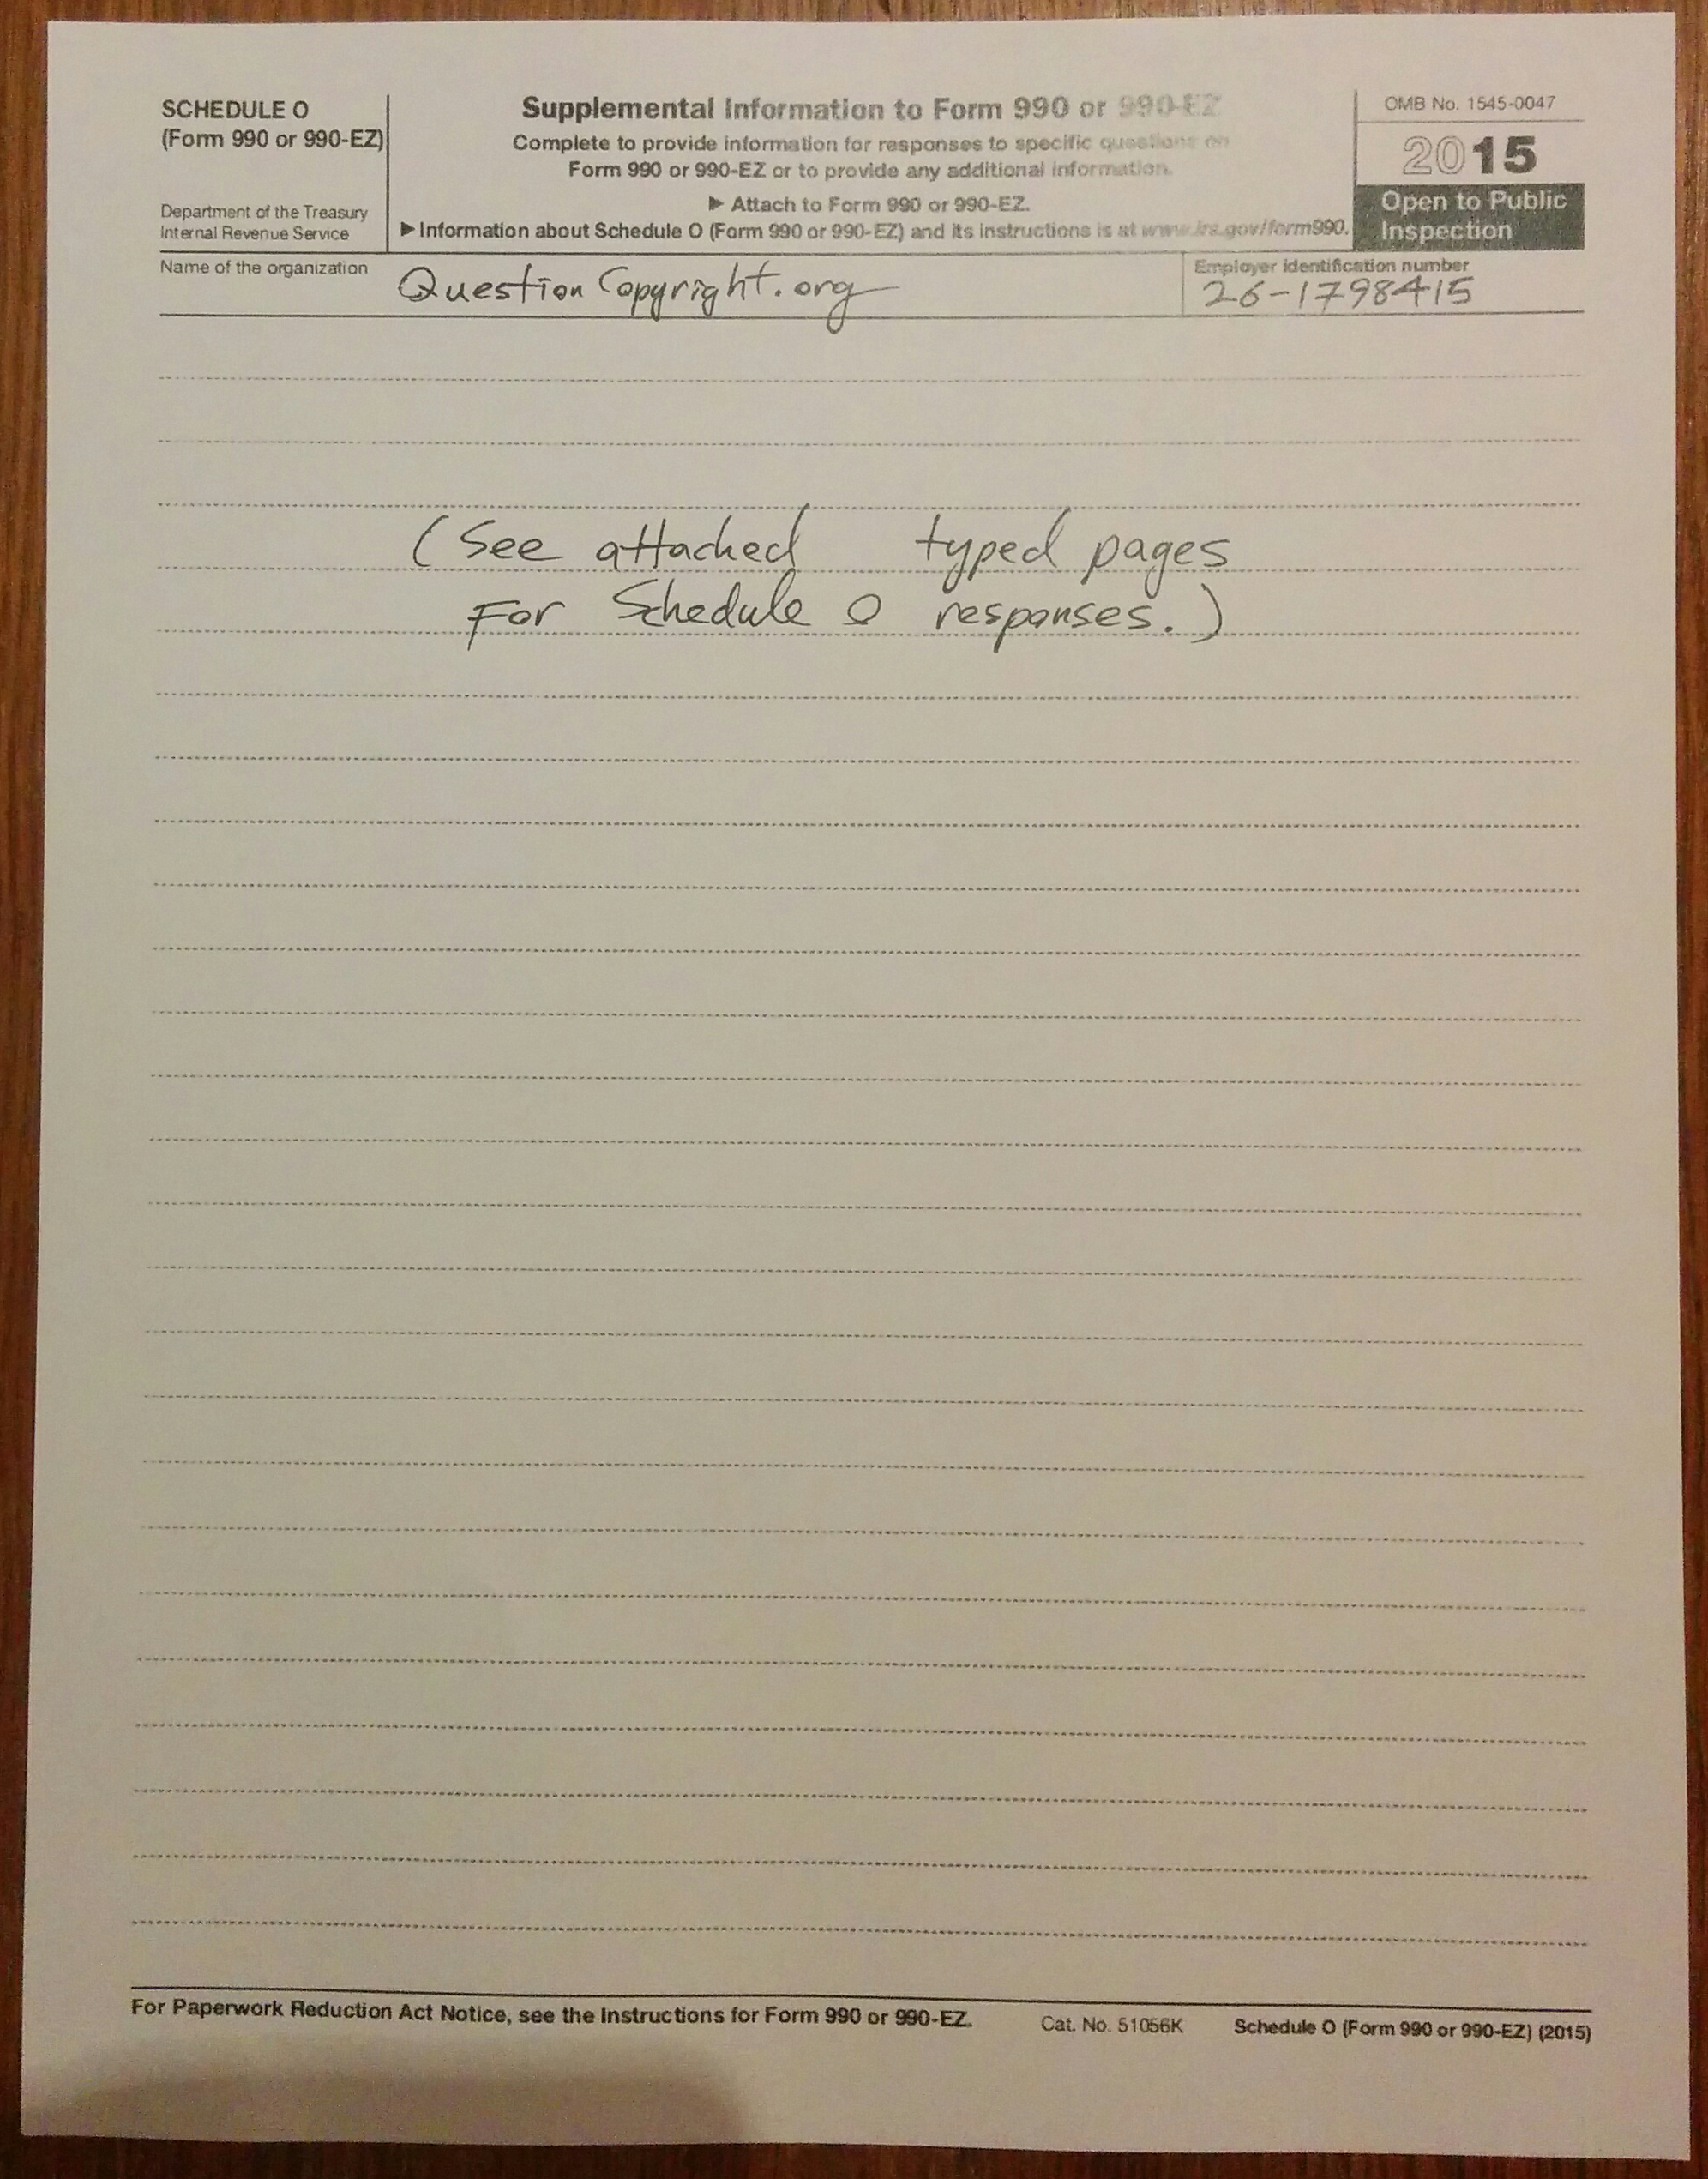 SCHEDULE O
(Form 990 or 990-EZ)
Department of the Treasury
Internal Revenue Service
Supplemental Information to Form 990 or 990-EZ
Complete to provide information for responses to specific questions on
Form 990 or 990-EZ or to provide any additional information.
▶ Attach to Form 990 or 990-EZ.
▶ Information about Schedule O (Form 990 or 990-EZ) and its instructions is at www.irs.gov/form990.
OMB No. 1545-0047
2015
Open to Public
Inspection
Name of the organization
QuestionCopyright.org
Employer identification number
26-1798415
(See attached typed pages
For Schedule O responses.)
For Paperwork Reduction Act Notice, see the Instructions for Form 990 or 990-EZ.
Cat. No. 51056K
Schedule O (Form 990 or 990-EZ) (2015)